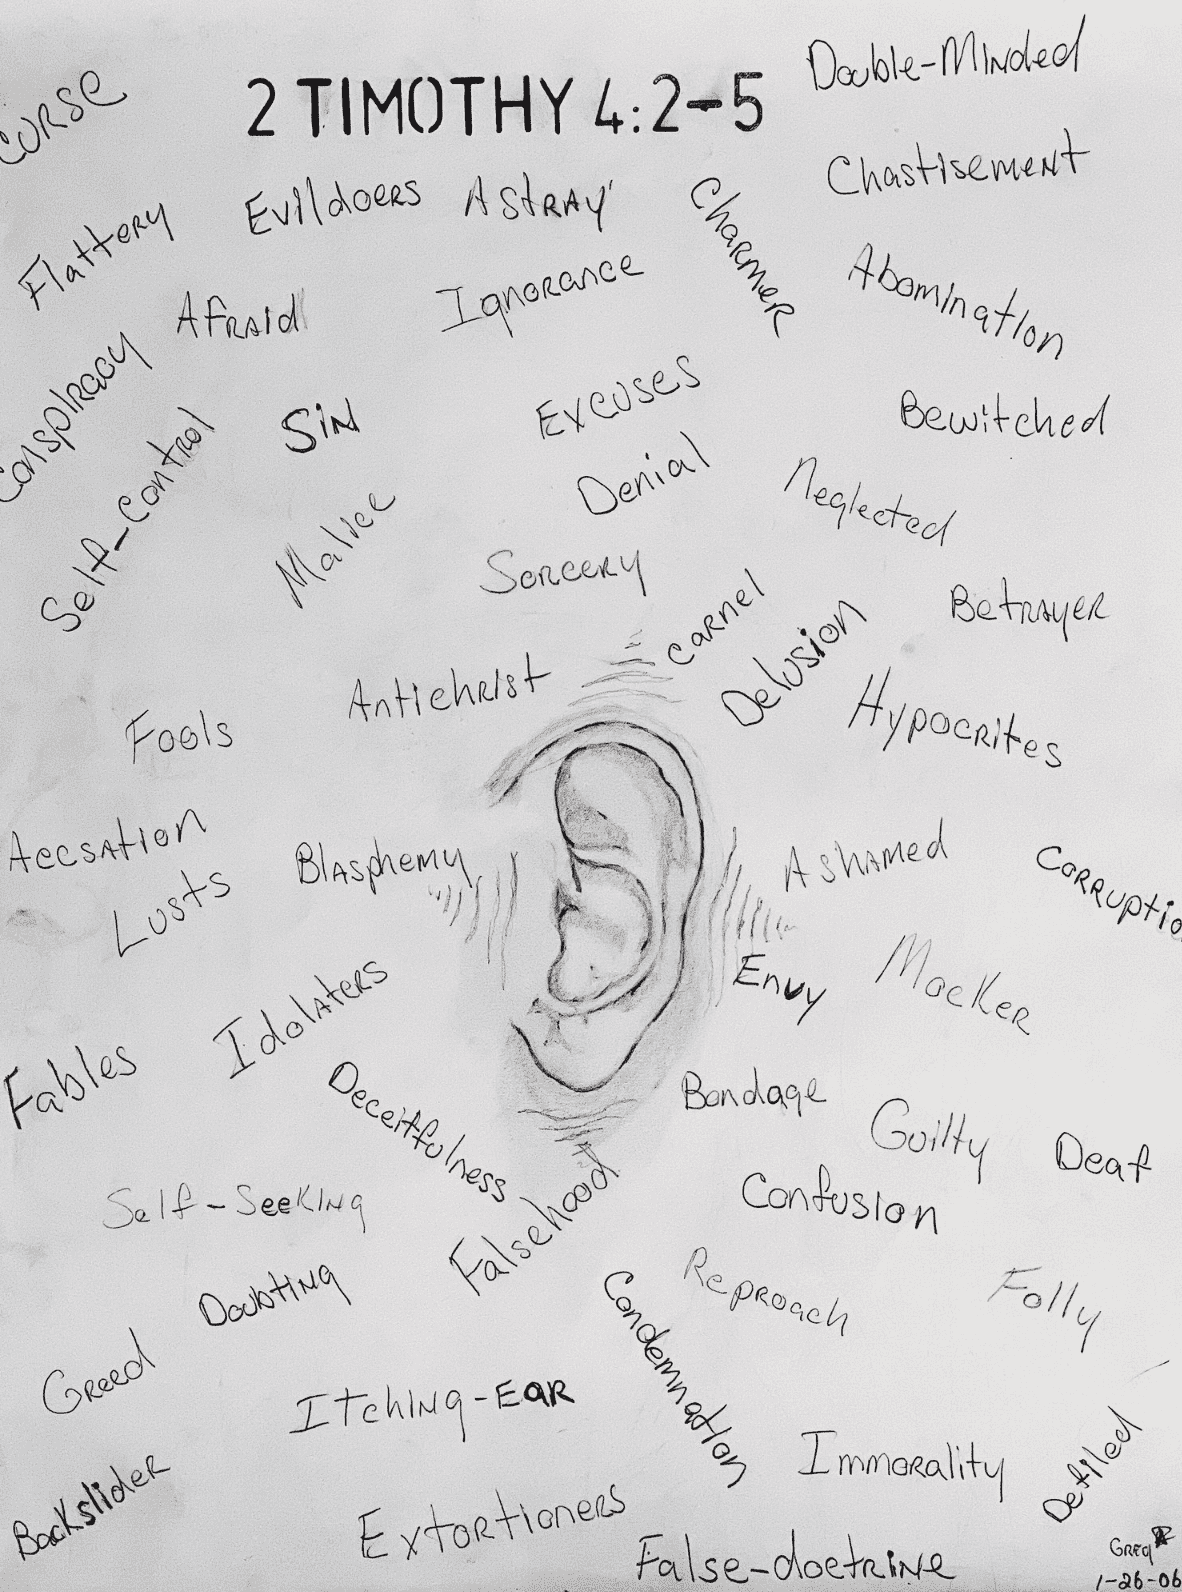 2 TIMOTHY 4:2-5
Double-Minded
Curse
Chastisement
Evildoers
Astray
Charmer
Flattery
Ignorance
Abomination
Afraid
Conspiracy
Excuses
Bewitched
Sin
Self-Control
Denial
Neglected
Malice
Sorcery
Carnel
Betrayer
Delusion
Antichrist
Hypocrites
Fools
Accsation
Blasphemy
Ashamed
Corruptio
Lusts
Envy
Mocker
Idolaters
Fables
Deceitfulness
Bondage
Guilty
Deaf
Self-Seeking
Falsehood
Confusion
Doubting
Condemnation
Reproach
Folly
Greed
Itching-Ear
Immorality
Defiled
Backslider
Extortioners
False-doctrine
Greg
1-26-06